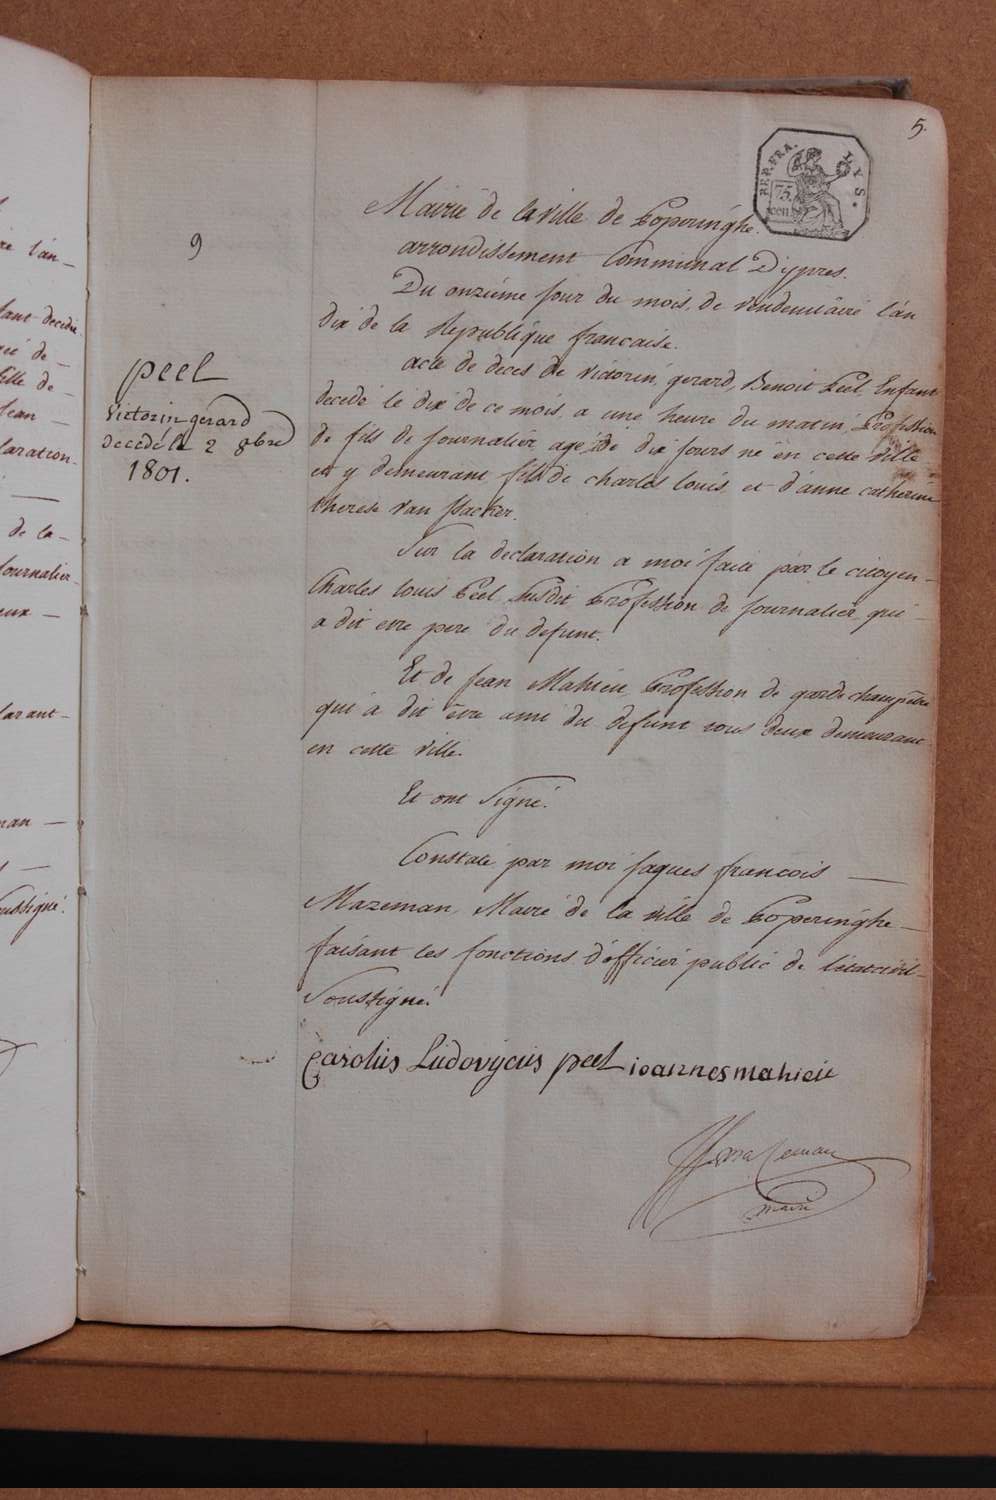 5.
REP. FRA. LYS.
75. cen.
9
Mairie de la ville de Poperinghe.
arrondissement Communal D'ypres.
Du onzième Jour du mois de vendemiaire l'an
dix de la Republique francaise.
acte de deces de victorin, gerard, Benoit Peel, Enfant
decedé le dix de ce mois a une heure du matin, Profession
de fils de Journalier agé de dix Jours né en cette ville
et y demeurant, fils de charles louis et d'anne catherine
therese van
peel
victorin gerard
decedé le 2 8bre
1801.
Sur la declaration a moi faite par le citoyen
Charles louis Peel susdit Profession de Journalier qui
a dit etre pere du defunt.
Et de Jean Mahieu Profession de garde champêtre
qui a dit être ami du defunt tous deux demeurant
en cette ville.
Et ont Signé.
Constaté par moi Jaques francois
Mazeman, Maire de la ville de Poperinghe
faisant les fonctions d'officier public de l'etat civil
Soussigné.
Carolus Ludovycus peel ioannes mahieu
Mazeman
maire
re l'an
decedé
de
fille de
Jean
laration
de la
Journalier
eux
larant
man
Soussigné.